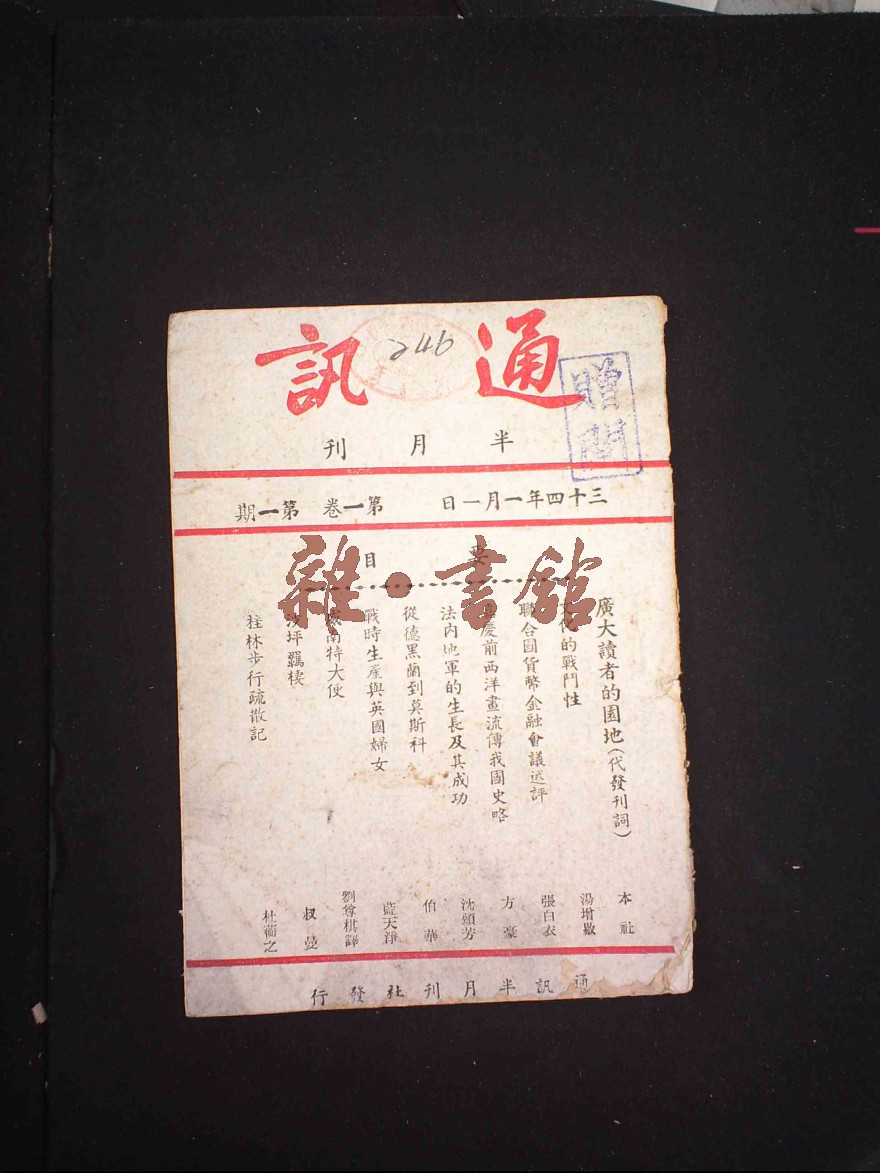 通訊
246
贈閱
半月刊
三十四年一月一日
第一卷 第一期
要目
雜·書館
廣大讀者的園地(代發刊詞) 本社
文化的戰鬥性 湯增敭
聯合國貨幣金融會議述評 張白衣
慶前西洋畫流傳我國史略 方豪
法內地軍的生長及其成功 沈頌芳
從德黑蘭到莫斯科 伯華
戰時生產與英國婦女 藍天淨
南特大使 劉尊棋譯
沙坪羈棲 叔曼
桂林步行疏散記 杜蘅之
通訊半月刊社發行